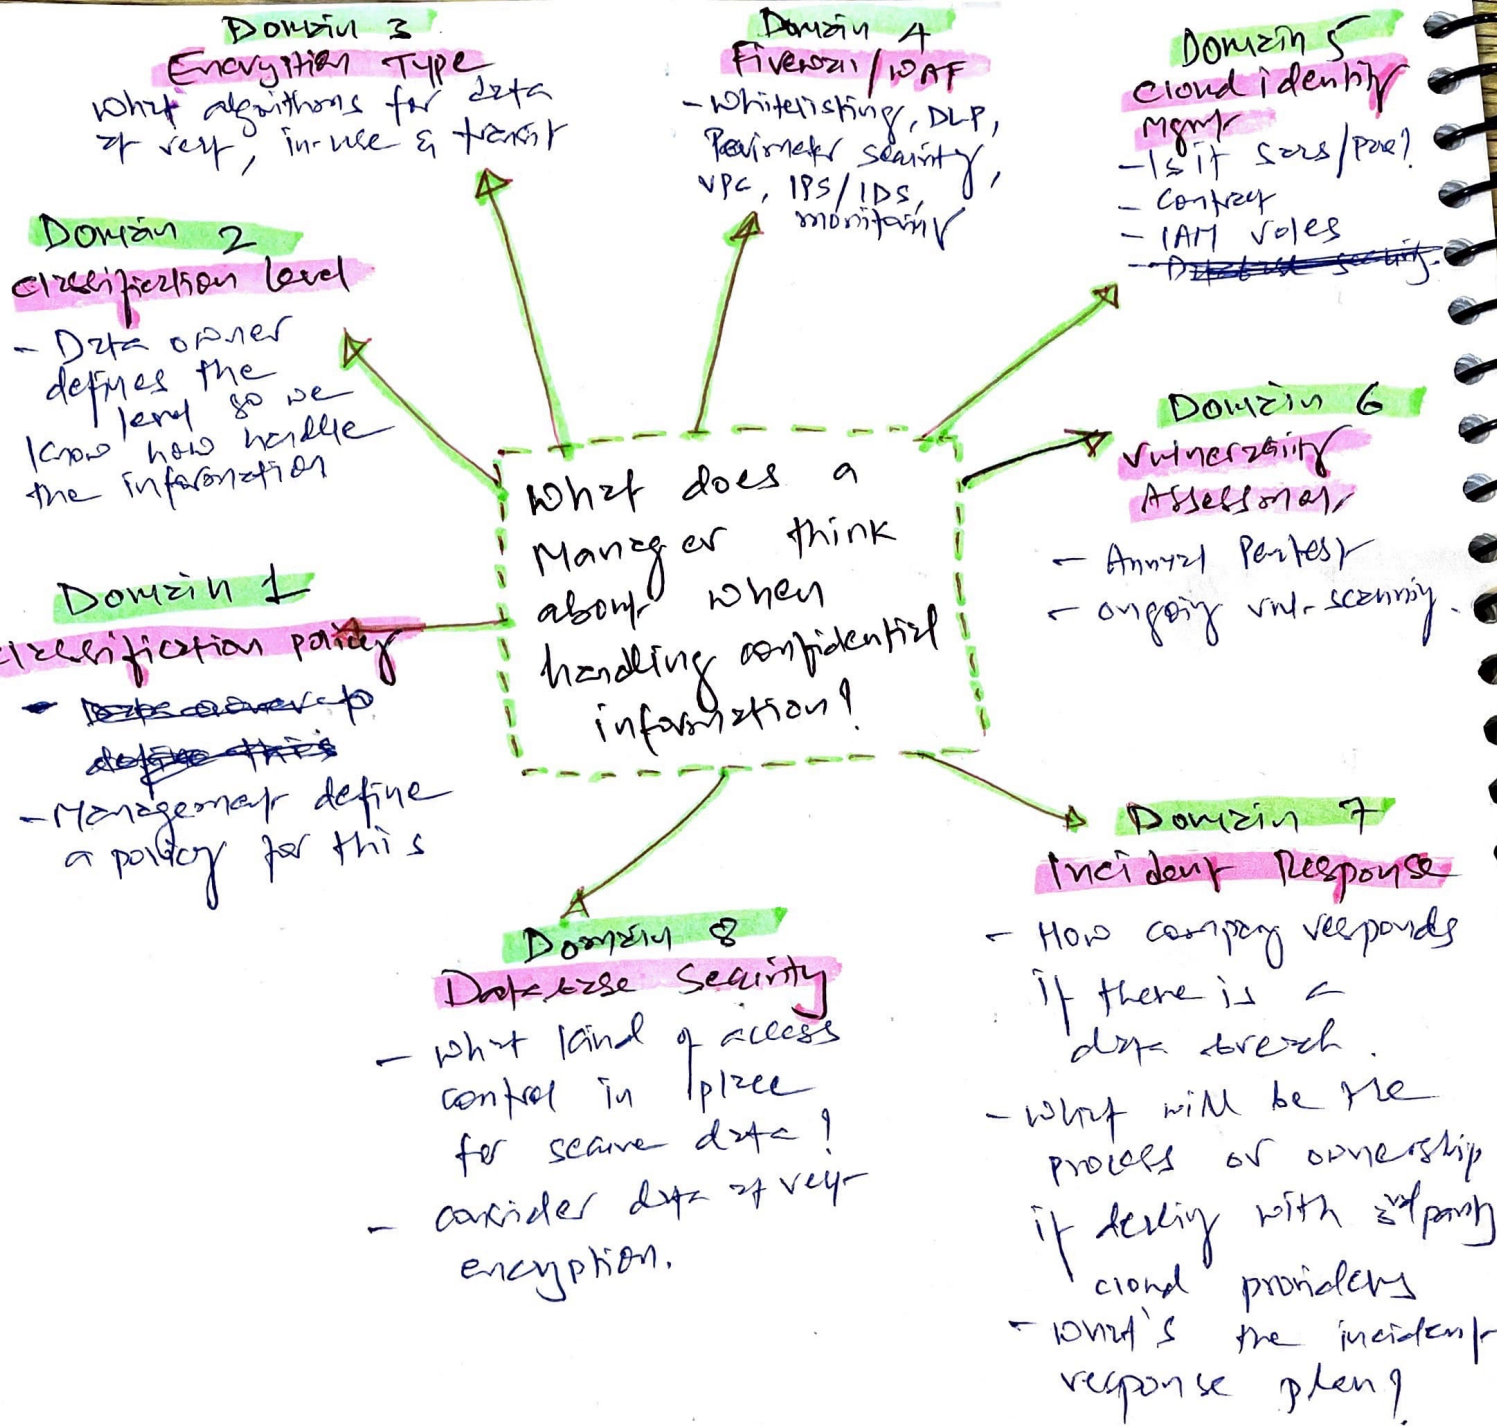 Domain 3
Encryption Type
What algorithms for data
at rest, in-use & transit
Domain 4
Firewall/WAF
- Whitelisting, DLP,
Perimeter security,
VPC, IPS/IDS,
monitoring
Domain 5
Cloud identity
Mgmt
- Is it SaaS/PaaS?
- Contract
- IAM roles
- Database security.
Domain 2
Classification Level
- Data owner
defines the
level so we
know how handle
the information
Domain 6
Vulnerability
Assessment
- Annual Pentest
- ongoing vul. scanning.
What does a
Manager think
about when
handling confidential
information?
Domain 1
Classification policy
- Data owner to
define this
- Management define
a policy for this
Domain 7
Incident Response
- How company responds
if there is a
data breach.
- What will be the
process or ownership
if dealing with 3rd party
cloud providers
- What's the incident
response plan?
Domain 8
Database Security
- What kind of access
control in place
for secure data?
- consider data at rest
encryption.